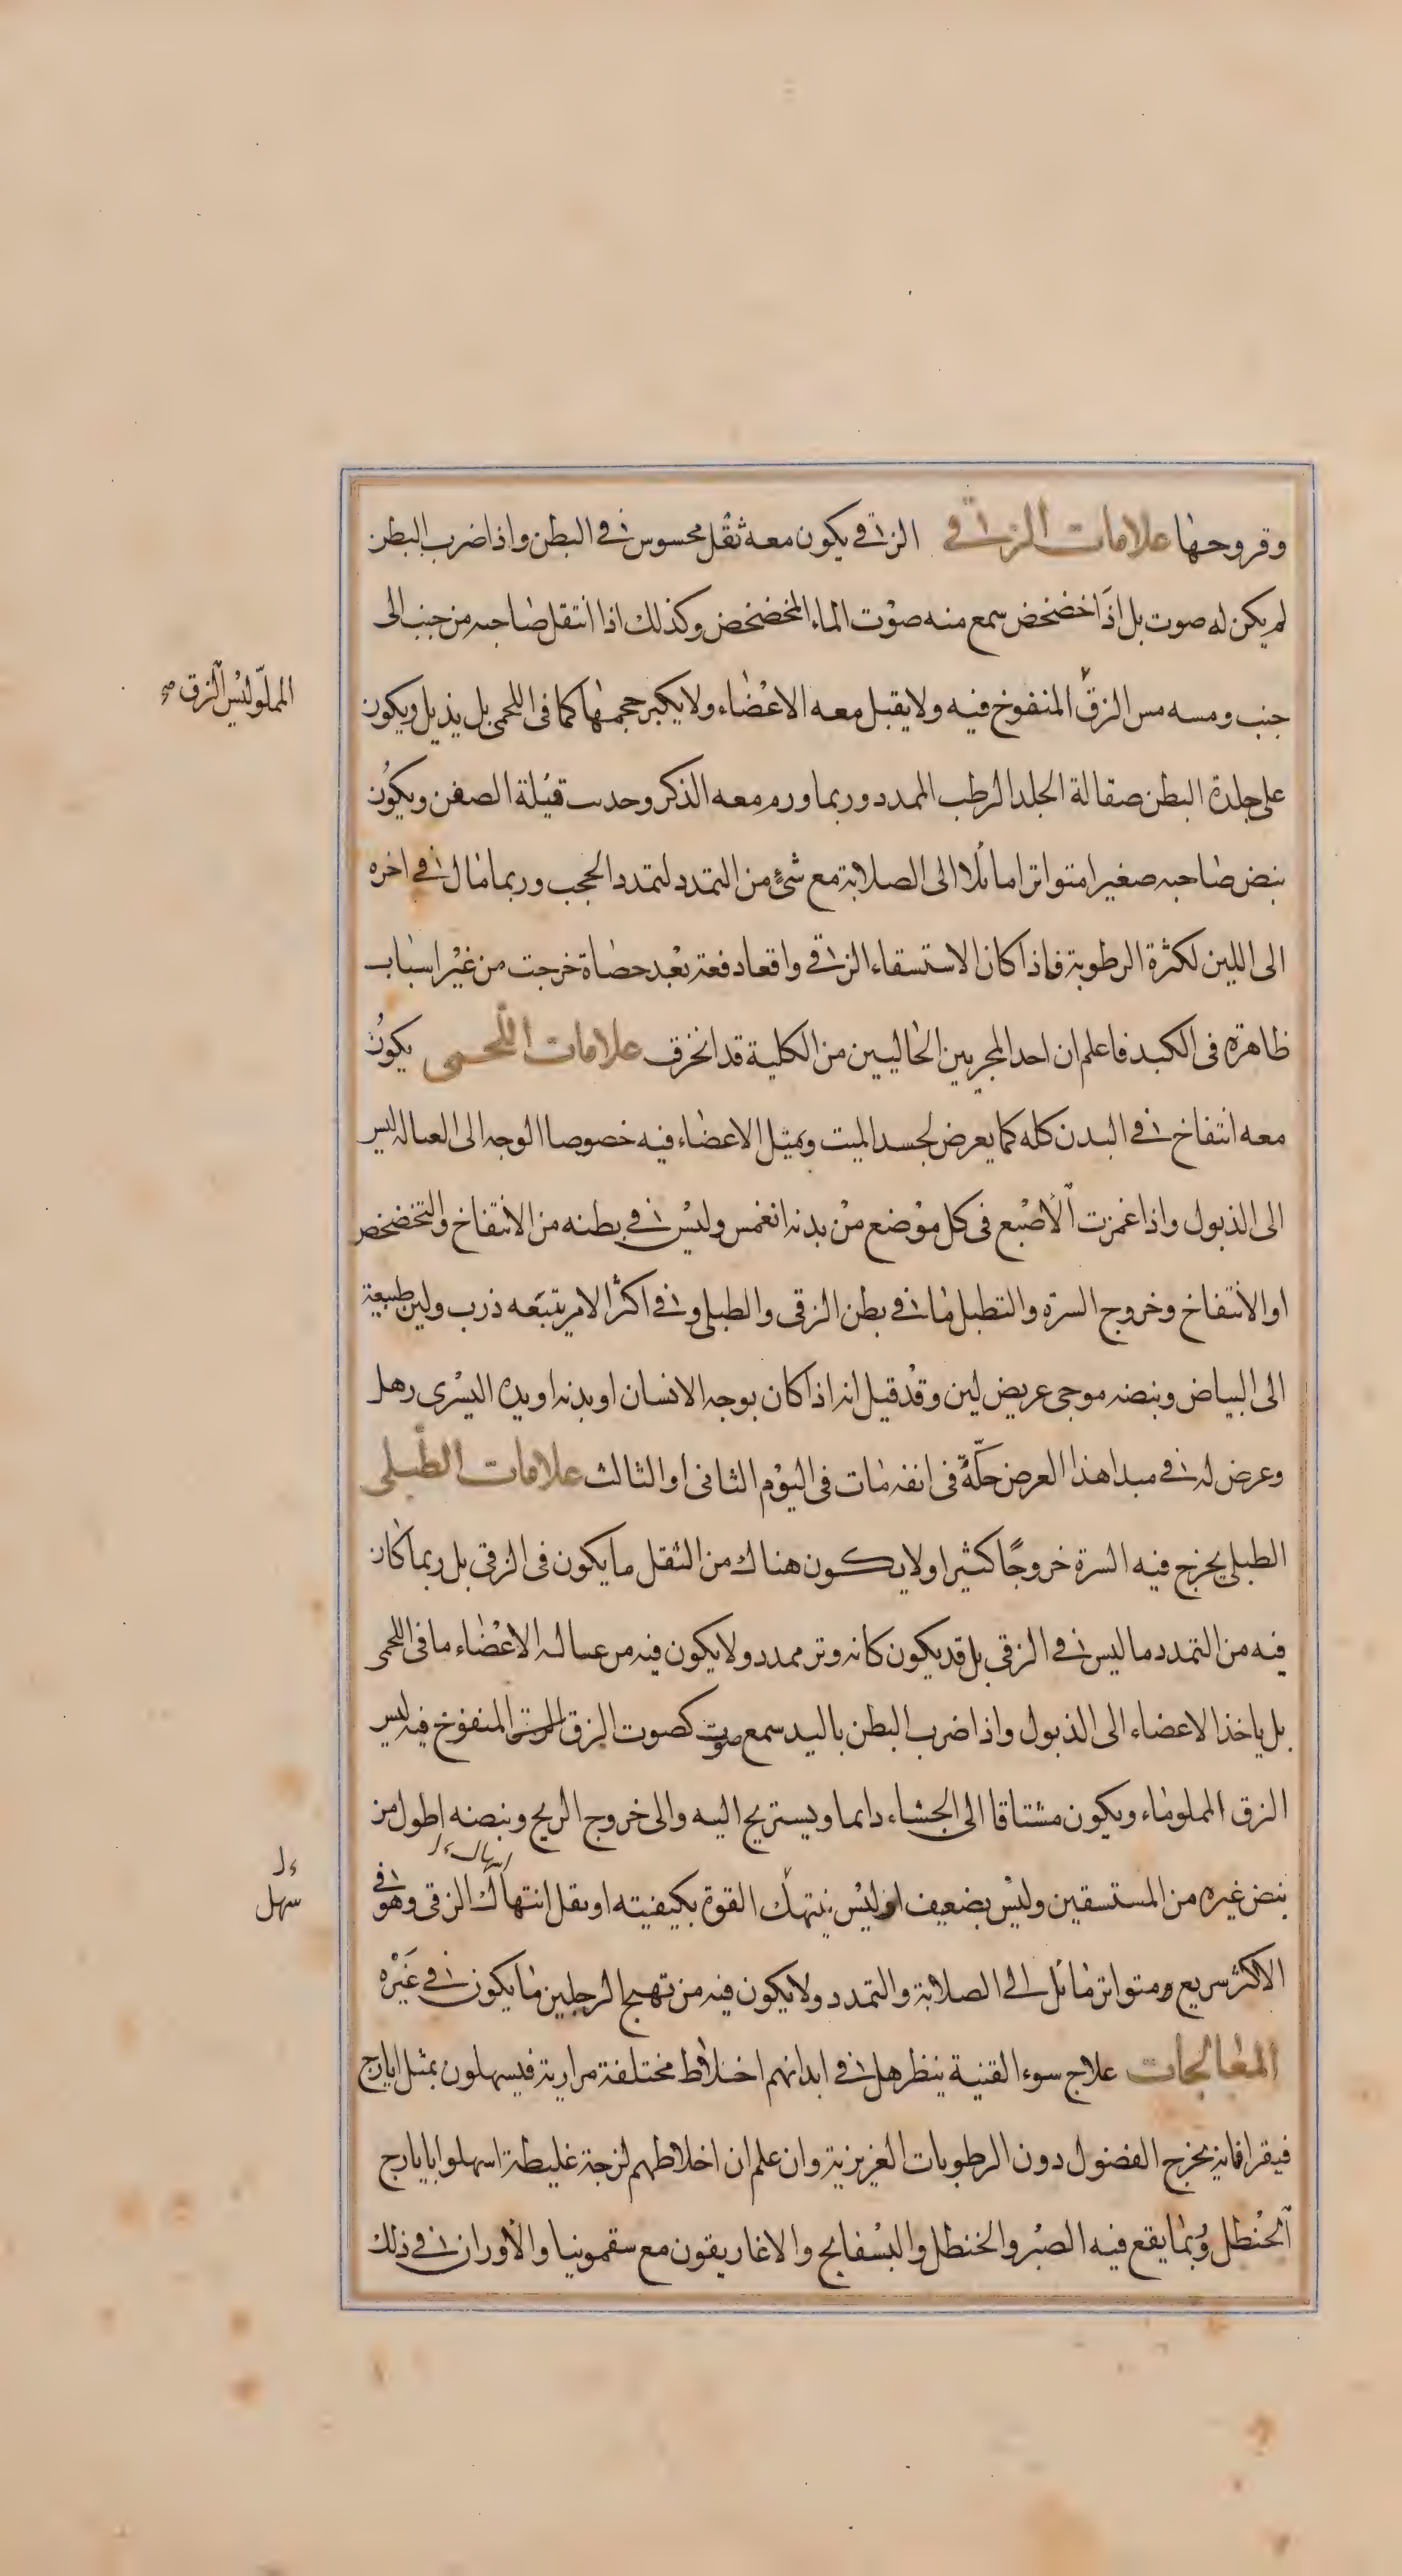 وقروحها علامات الزقي الزقي يكون معه ثقل محسوس في البطن واذا ضرب البطن
لم يكن له صوت بل اذا خضخض سمع منه صوت الماء المخضخض وكذلك اذا انتقل صاحبه من جنب الى
المملو ليس الزق صح
جنب ومسه مس الزق المنفوخ فيه ولا يقبل معه الاعضاء ولا يكبر حجمها كما في اللحمى بل يذبل ويكون
على جلدة البطن صقالة الجلد الرطب الممدد وربما ورم معه الذكر وحدث قيلة الصفن ويكون
نبض صاحبه صغيرا متواترا مائلا الى الصلابة مع شئ من التمدد لتمدد الحجب وربما مال في اخره
الى اللين لكثرة الرطوبة فاذا كان الاستسقاء الزقي واقعا دفعة بعد حصاة خرجت من غير اسباب
ظاهرة في الكبد فاعلم ان احد المجريين الحاليين من الكلية قد انخرق علامات اللحمى يكون
معه انتفاخ في البدن كله كما يعرض لجسد الميت وتميل الاعضاء فيه خصوصا الوجه الى العبالة ليس
الى الذبول واذا غمزت الاصبع في كل موضع من بدنه انغمس وليس في بطنه من الانتفاخ والتخضخض
او الانتفاخ وخروج السرة والتطبل ما في بطن الزقى والطبلى وفي اكثر الامر يتبعه ذرب ولين طبيعة
الى البياض ونبضه موجى عريض لين وقد قيل انه اذا كان بوجه الانسان او بدنه او يده اليسرى رهل
وعرض له في مبدا هذا العرض حكة في انفه مات في اليوم الثاني او الثالث علامات الطبلى
الطبلى يخرج فيه السرة خروجًا كثيرا ولا يكون هناك من الثقل ما يكون في الزقى بل ربما كان
فيه من التمدد ما ليس في الزقى بل قد يكون كانه وتر ممدد ولا يكون فيه من عبالة الاعضاء ما في اللحمى
بل ياخذ الاعضاء الى الذبول واذا ضرب البطن باليد سمع صوت كصوت الزق المنفوخ فيه ليس
الزق المملو ماء ويكون مشتاقا الى الجشاء دائما ويستريح اليه والى خروج الريح ونبضه اطول من
نبض غيره من المستسقين وليس بضعيف اذ ليس ينهك القوة بكيفيته او بقل انتهاك الزقى وهو في
سهل
الاكثر سريع ومتواتر مائل الى الصلابة والتمدد ولا يكون فيه من تهيج الرجلين ما يكون في غيره
المعالجات علاج سوء القنية ينظر هل في ابدانهم اخلاط مختلفة مرارية فيسهلون بمثل ايارج
فيقرا فانه يخرج الفضول دون الرطوبات الغريزية وان علم ان اخلاطهم لزجة غليظة اسهلوا بايارج
الحنظل وبما يقع فيه الصبر والحنظل والبسفايج والاغاريقون مع سقمونيا والاوزان في ذلك